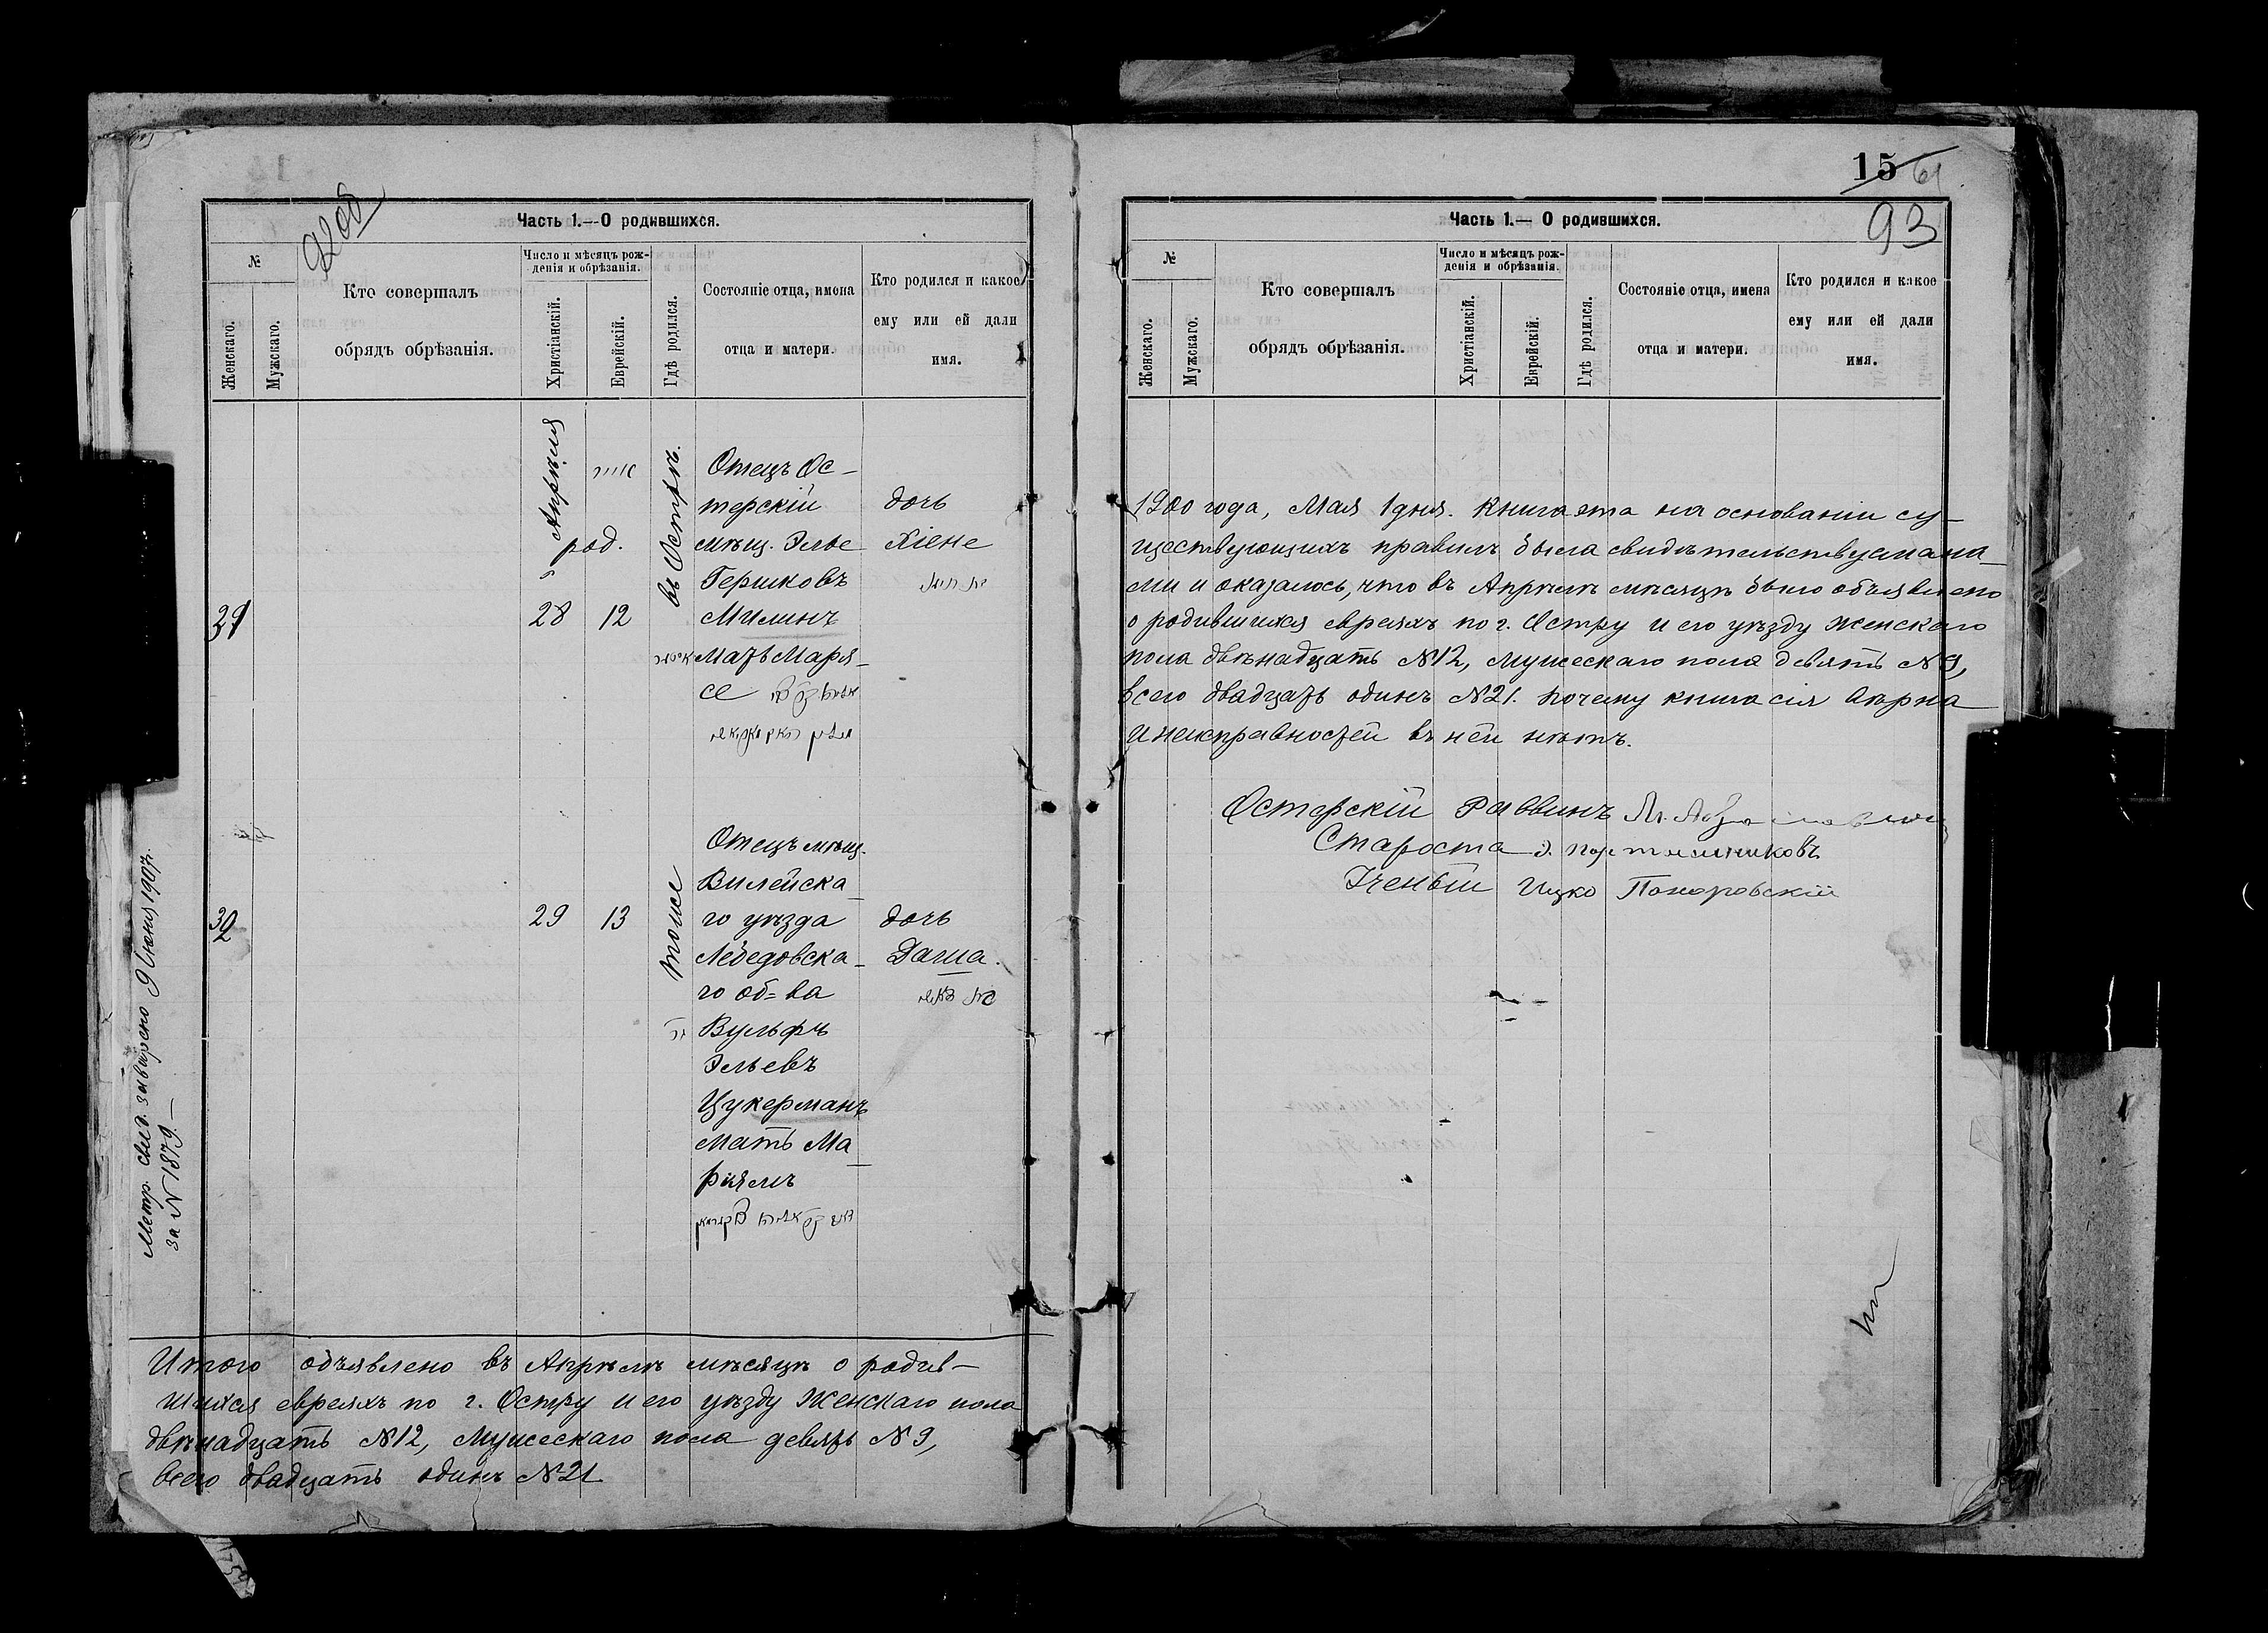 92об
Часть 1.— О родившихся.
№
Женскаго.
Мужскаго.
Кто совершалъ
обрядъ обрѣзанія.
Число и мѣсяцъ рож-
денія и обрѣзанія.
Христіанскій.
Еврейскій.
Гдѣ родился.
Состояніе отца, имена
отца и матери.
Кто родился и какое
ему или ей дали
имя.
Апрѣля
род.
въ Острѣ.
31
28
12
Отецъ Ос-
терскій
мѣщ. Элье
Гершковъ
Милинъ
Мать Марья-
се
дочь
Хіене
32
29
13
тоже
Отецъ мѣщ.
Вилейска-
го уѣзда
Лебедовска-
го об-ва
Вульфъ
Эльевъ
Цукерманъ
мать Ма-
ріямъ
дочь
Даша.
Метр. свид. выдано 9 Іюня 1907г.
за № 1879.—
Итого объявлено въ Апрѣлѣ мѣсяцѣ о родив-
шихся евреяхъ по г. Остру и его уѣзду Женскаго пола
двѣнадцать №12, Мужескаго пола девять №9,
всего двадцать одинъ №21
15
61
93
Часть 1.— О родившихся.
№
Женскаго.
Мужскаго.
Кто совершалъ
обрядъ обрѣзанія.
Число и мѣсяцъ рож-
денія и обрѣзанія.
Христіанскій.
Еврейскій.
Гдѣ родился.
Состояніе отца, имена
отца и матери.
Кто родился и какое
ему или ей дали
имя.
1900 года, Мая 1 дня. Книга эта на основаніи су-
ществующихъ правилъ была свидѣтельствуема на-
ми и оказалось, что въ Апрѣлѣ мѣсяцѣ было объявлено
о родившихся евреяхъ по г. Остру и его уѣзду женскаго
пола двѣнадцать №12, мужескаго пола девять №9,
всего двадцать одинъ №21. почему книга сія вѣрна
и неисправностей въ ней нѣтъ.
Остерскій Раввинъ
Староста
Ученый Ицко